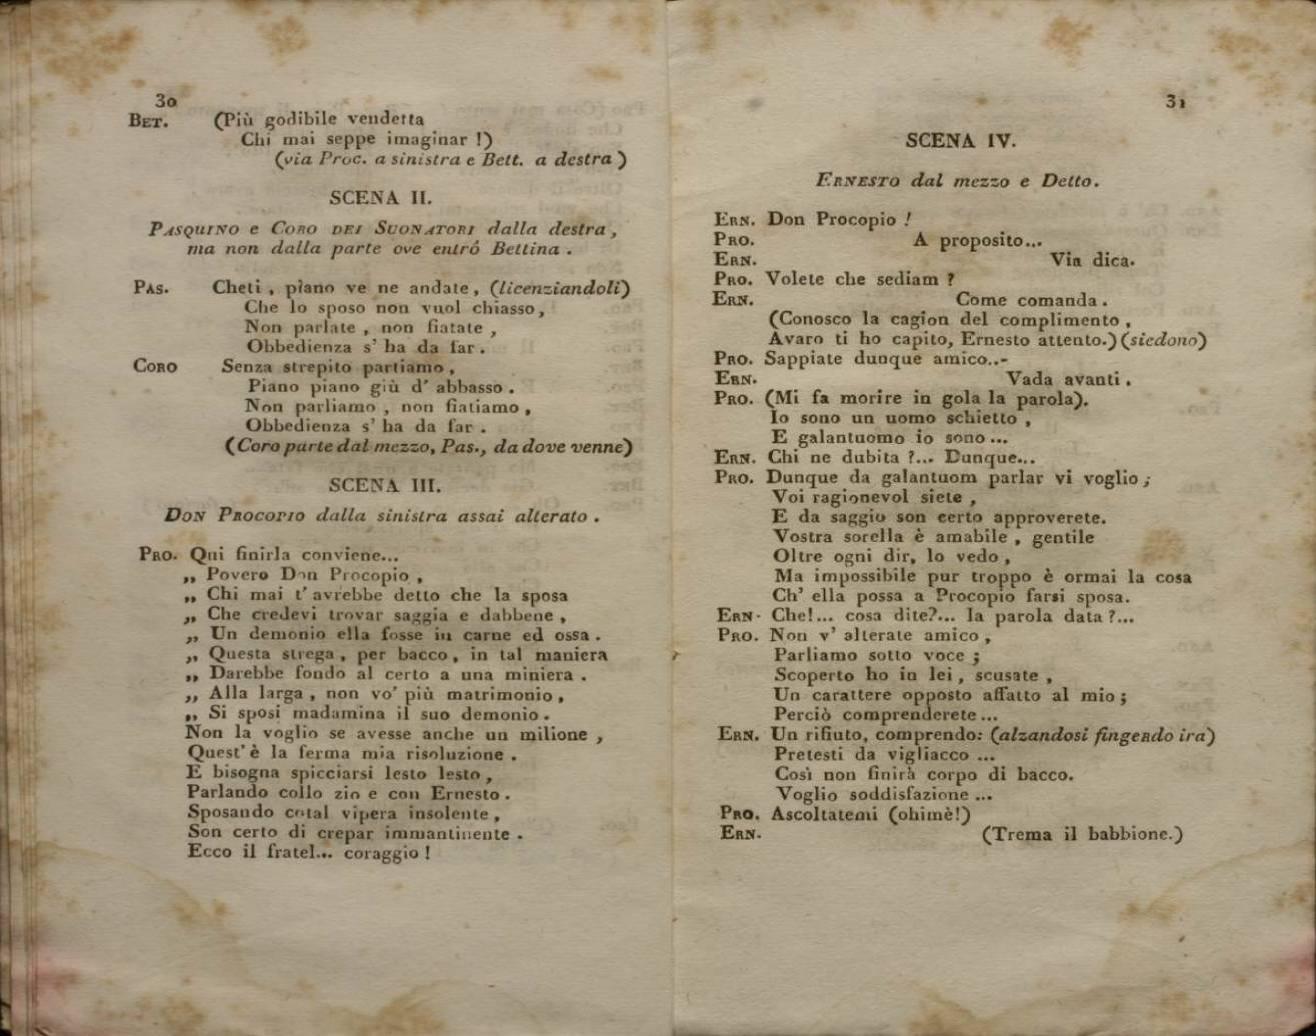 30
BET. (Più godibile vendetta
Chi mai seppe imaginar !)
(via Proc. a sinistra e Bett. a destra )
SCENA II.
PASQUINO e CORO DEI SUONATORI dalla destra ,
ma non dalla parte ove entrò Bettina .
PAS. Cheti , piano ve ne andate , (licenziandoli)
Che lo sposo non vuol chiasso ,
Non parlate , non fiatate ,
Obbedienza s' ha da far .
CORO Senza strepito partiamo ,
Piano piano giù d' abbasso .
Non parliamo , non fiatiamo ,
Obbedienza s' ha da far .
(Coro parte dal mezzo, Pas., da dove venne)
SCENA III.
DON PROCOPIO dalla sinistra assai alterato .
PRO. Qui finirla conviene...
„ Povero Don Procopio ,
„ Chi mai t' avrebbe detto che la sposa
„ Che credevi trovar saggia e dabbene ,
„ Un demonio ella fosse in carne ed ossa .
„ Questa strega , per bacco , in tal maniera
„ Darebbe fondo al certo a una miniera .
„ Alla larga , non vo' più matrimonio ,
„ Si sposi madamina il suo demonio .
Non la voglio se avesse anche un milione ,
Quest' è la ferma mia risoluzione .
E bisogna spicciarsi lesto lesto ,
Parlando collo zio e con Ernesto .
Sposando cotal vipera insolente ,
Son certo di crepar immantinente .
Ecco il fratel... coraggio !
31
SCENA IV.
ERNESTO dal mezzo e Detto.
ERN. Don Procopio !
PRO. A proposito...
ERN. Via dica.
PRO. Volete che sediam ?
ERN. Come comanda .
(Conosco la cagion del complimento ,
Avaro ti ho capito, Ernesto attento.) (siedono)
PRO. Sappiate dunque amico..-
ERN. Vada avanti .
PRO. (Mi fa morire in gola la parola).
Io sono un uomo schietto ,
E galantuomo io sono ...
ERN. Chi ne dubita ?... Dunque...
PRO. Dunque da galantuom parlar vi voglio ;
Voi ragionevol siete ,
E da saggio son certo approverete.
Vostra sorella è amabile , gentile
Oltre ogni dir, lo vedo ,
Ma impossibile pur troppo è ormai la cosa
Ch' ella possa a Procopio farsi sposa.
ERN. Che!... cosa dite?... la parola data ?...
PRO. Non v' alterate amico ,
Parliamo sotto voce ;
Scoperto ho in lei , scusate ,
Un carattere opposto affatto al mio ;
Perciò comprenderete ...
ERN. Un rifiuto, comprendo: (alzandosi fingendo ira)
Pretesti da vigliacco ...
Così non finirà corpo di bacco.
Voglio soddisfazione ...
PRO. Ascoltatemi (ohimè!)
ERN. (Trema il babbione.)